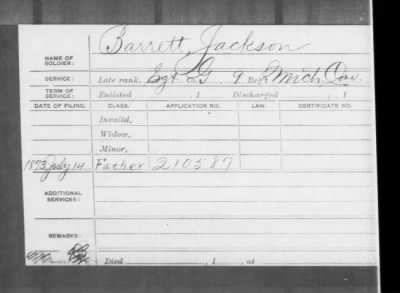 NAME OF SOLDIER: Barrett, Jackson
SERVICE: Late rank, Sgt Co. G, 9 Reg't Mich Cav.
TERM OF SERVICE: Enlisted , 1 Discharged , 1
DATE OF FILING. CLASS. APPLICATION NO. LAW. CERTIFICATE NO.
Invalid,
Widow,
Minor,
1873 July 14 Father 210587
ADDITIONAL SERVICES:
REMARKS:
Died , 1 , at